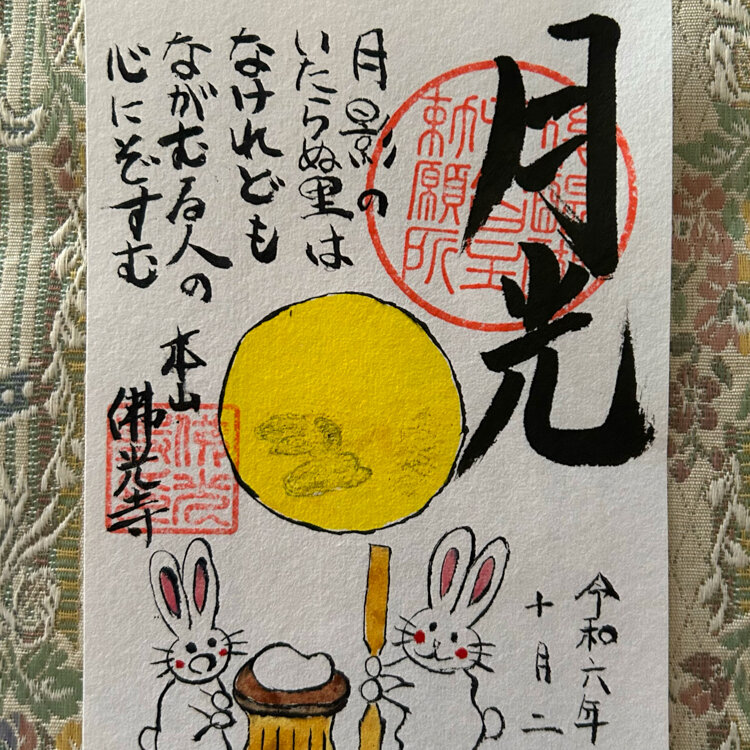 月光
月影の
いたらぬ里は
なけれども
ながむる人の
心にぞすむ
本山
佛光寺
勅願所
令和六年
十月二